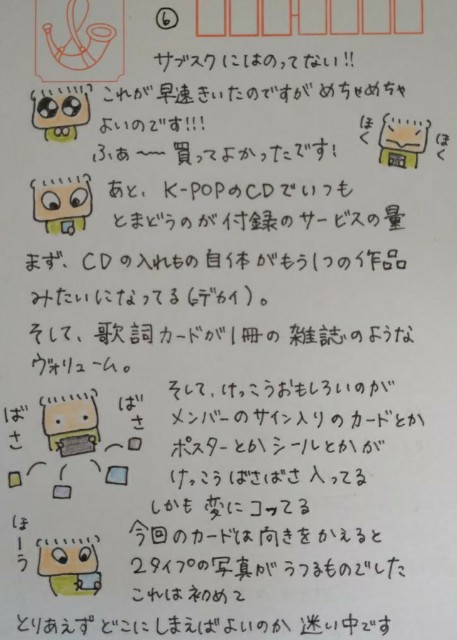 ⑥
サブスクにはのってない!!
これが早速きいたのですが めちゃめちゃ
よいのです!!!
ほく
ほく
ふぁ〜〜買ってよかったです!
あと、K-POPのCDでいつも
とまどうのが付録のサービスの量
まず、CDの入れもの自体がもう1つの作品
みたいになってる(デカイ)。
そして、歌詞カードが1冊の雑誌のような
ヴォリューム。
そして、けっこうおもしろいのが
ばさ
ばさ
メンバーのサイン入りのカードとか
ポスターとかシールとかが
けっこうばさばさ入ってる
しかも変にコってる
ほーう
今回のカードは向きをかえると
2タイプの写真がうつるものでした
これは初めて
とりあえずどこにしまえばよいのか 迷い中です